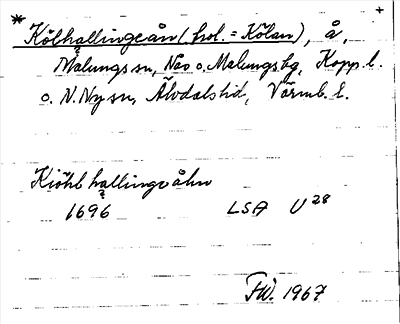 * Kölhallingeån (hol. = Kölan), å, +
Malungs sn, Nås o. Malungs bg, Kopp. l.
o. N. Ny sn, Älvdals hd, Värml. l.
Kiöhlhallingeåhn
1696 LSA U28
FW. 1967